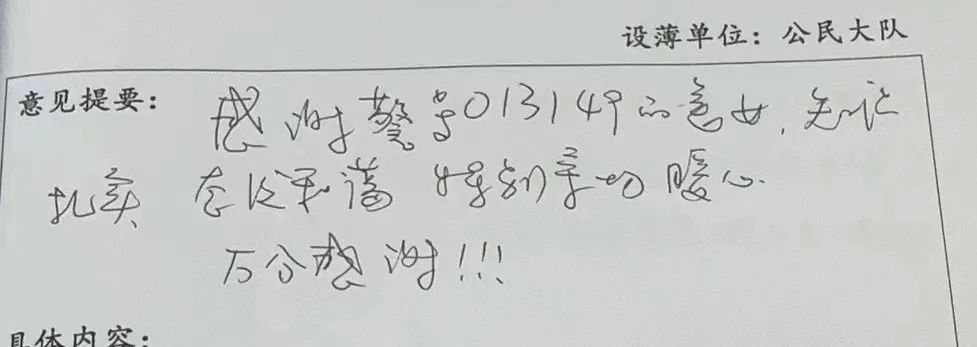 设薄单位：公民大队
意见提要：感谢警号013149的美女，知识
扎实 态度和蔼 特别亲切 暖心
万分感谢!!!
具体内容：